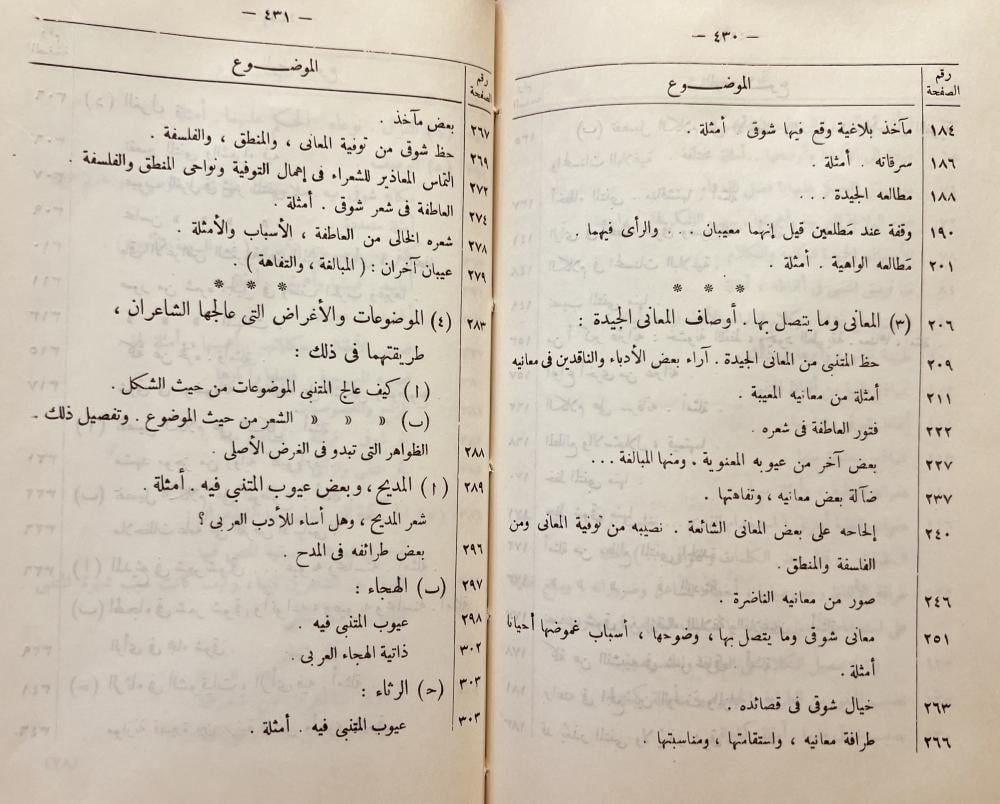 — ٤٣٠ —
رقم الصفحة الموضـــوع
١٨٤ مآخذ بلاغية وقع فيها شوقى . أمثلة .
١٨٦ سرقاته . أمثلة .
١٨٨ مطالعه الجيدة . . .
١٩٠ وقفة عند مَطلعين قيل إنهما معيبان . . . والرأى فيهما .
٢٠١ مَطالعه الواهية . أمثلة .
* * *
٢٠٦ (٣) المعانى وما يتصل بها . أوصاف المعانى الجيدة :
٢٠٩ حظ المتنبى من المعانى الجيدة . آراء بعض الأدباء والناقدين فى معانيه
٢١١ أمثلة من معانيه المعيبة .
٢٢٢ فتور العاطفة فى شعره .
٢٢٧ بعض آخر من عيوبه المعنوية . ومنها المبالغة . . .
٢٣٧ ضآلة بعض معانيه ، وتفاهتها .
٢٤٠ إلحاحه على بعض المعانى الشائعة . نصيبه من توفية المعانى ومن
الفاسفة والمنطق .
٢٤٦ صور من معانيه الناضرة .
٢٥١ معانى شوقى وما يتصل بها ، وضوحها ، أسباب غموضها أحيانا
أمثلة .
٢٦٣ خيال شوقى فى قصائده .
٢٦٦ طرافة معانيه ، واستقامتها ، ومناسبتها .
— ٤٣١ —
رقم الصفحة الموضـــوع
٢٦٧ بعض مآخذ .
٢٦٩ حظ شوقى من توفية المعانى ، والمنطق ، والفلسفة .
٢٧٢ التماس المعاذير للشعراء فى إهمال التوفية ونواحى المنطق والفلسفة .
٢٧٤ العاطفة فى شعر شوقى . أمثلة .
٢٧٨ شعره الخالى من العاطفة ، الأسباب والأمثلة .
٢٧٩ عيبان آخران : ( المبالغة ، والتفاهة )
* * *
٢٨٣ (٤) الموضوعات والأغراض التى عالجها الشاعران ،
طريقتهما فى ذلك :
(ا) كيف عالج المتنبى الموضوعات من حيث الشكل .
(ب) » » » الشعر من حيث الموضوع . وتفصيل ذلك .
٢٨٨ الظواهر التى تبدو فى الغرض الأصلى .
٢٨٩ (ا) المديح ، وبعض عيوب المتنبى فيه . أمثلة .
شعر المديح ، وهل أساء للأدب العربى ؟
٢٩٦ بعض طرائفه فى المدح .
٢٩٧ (ب) الهجاء :
٢٩٨ عيوب المتنبى فيه .
٣٠٢ ذاتية الهجاء العربى .
٣٠٣ (ح) الرثاء :
٣٠٣ عيوب المتنبى فيه . أمثلة .